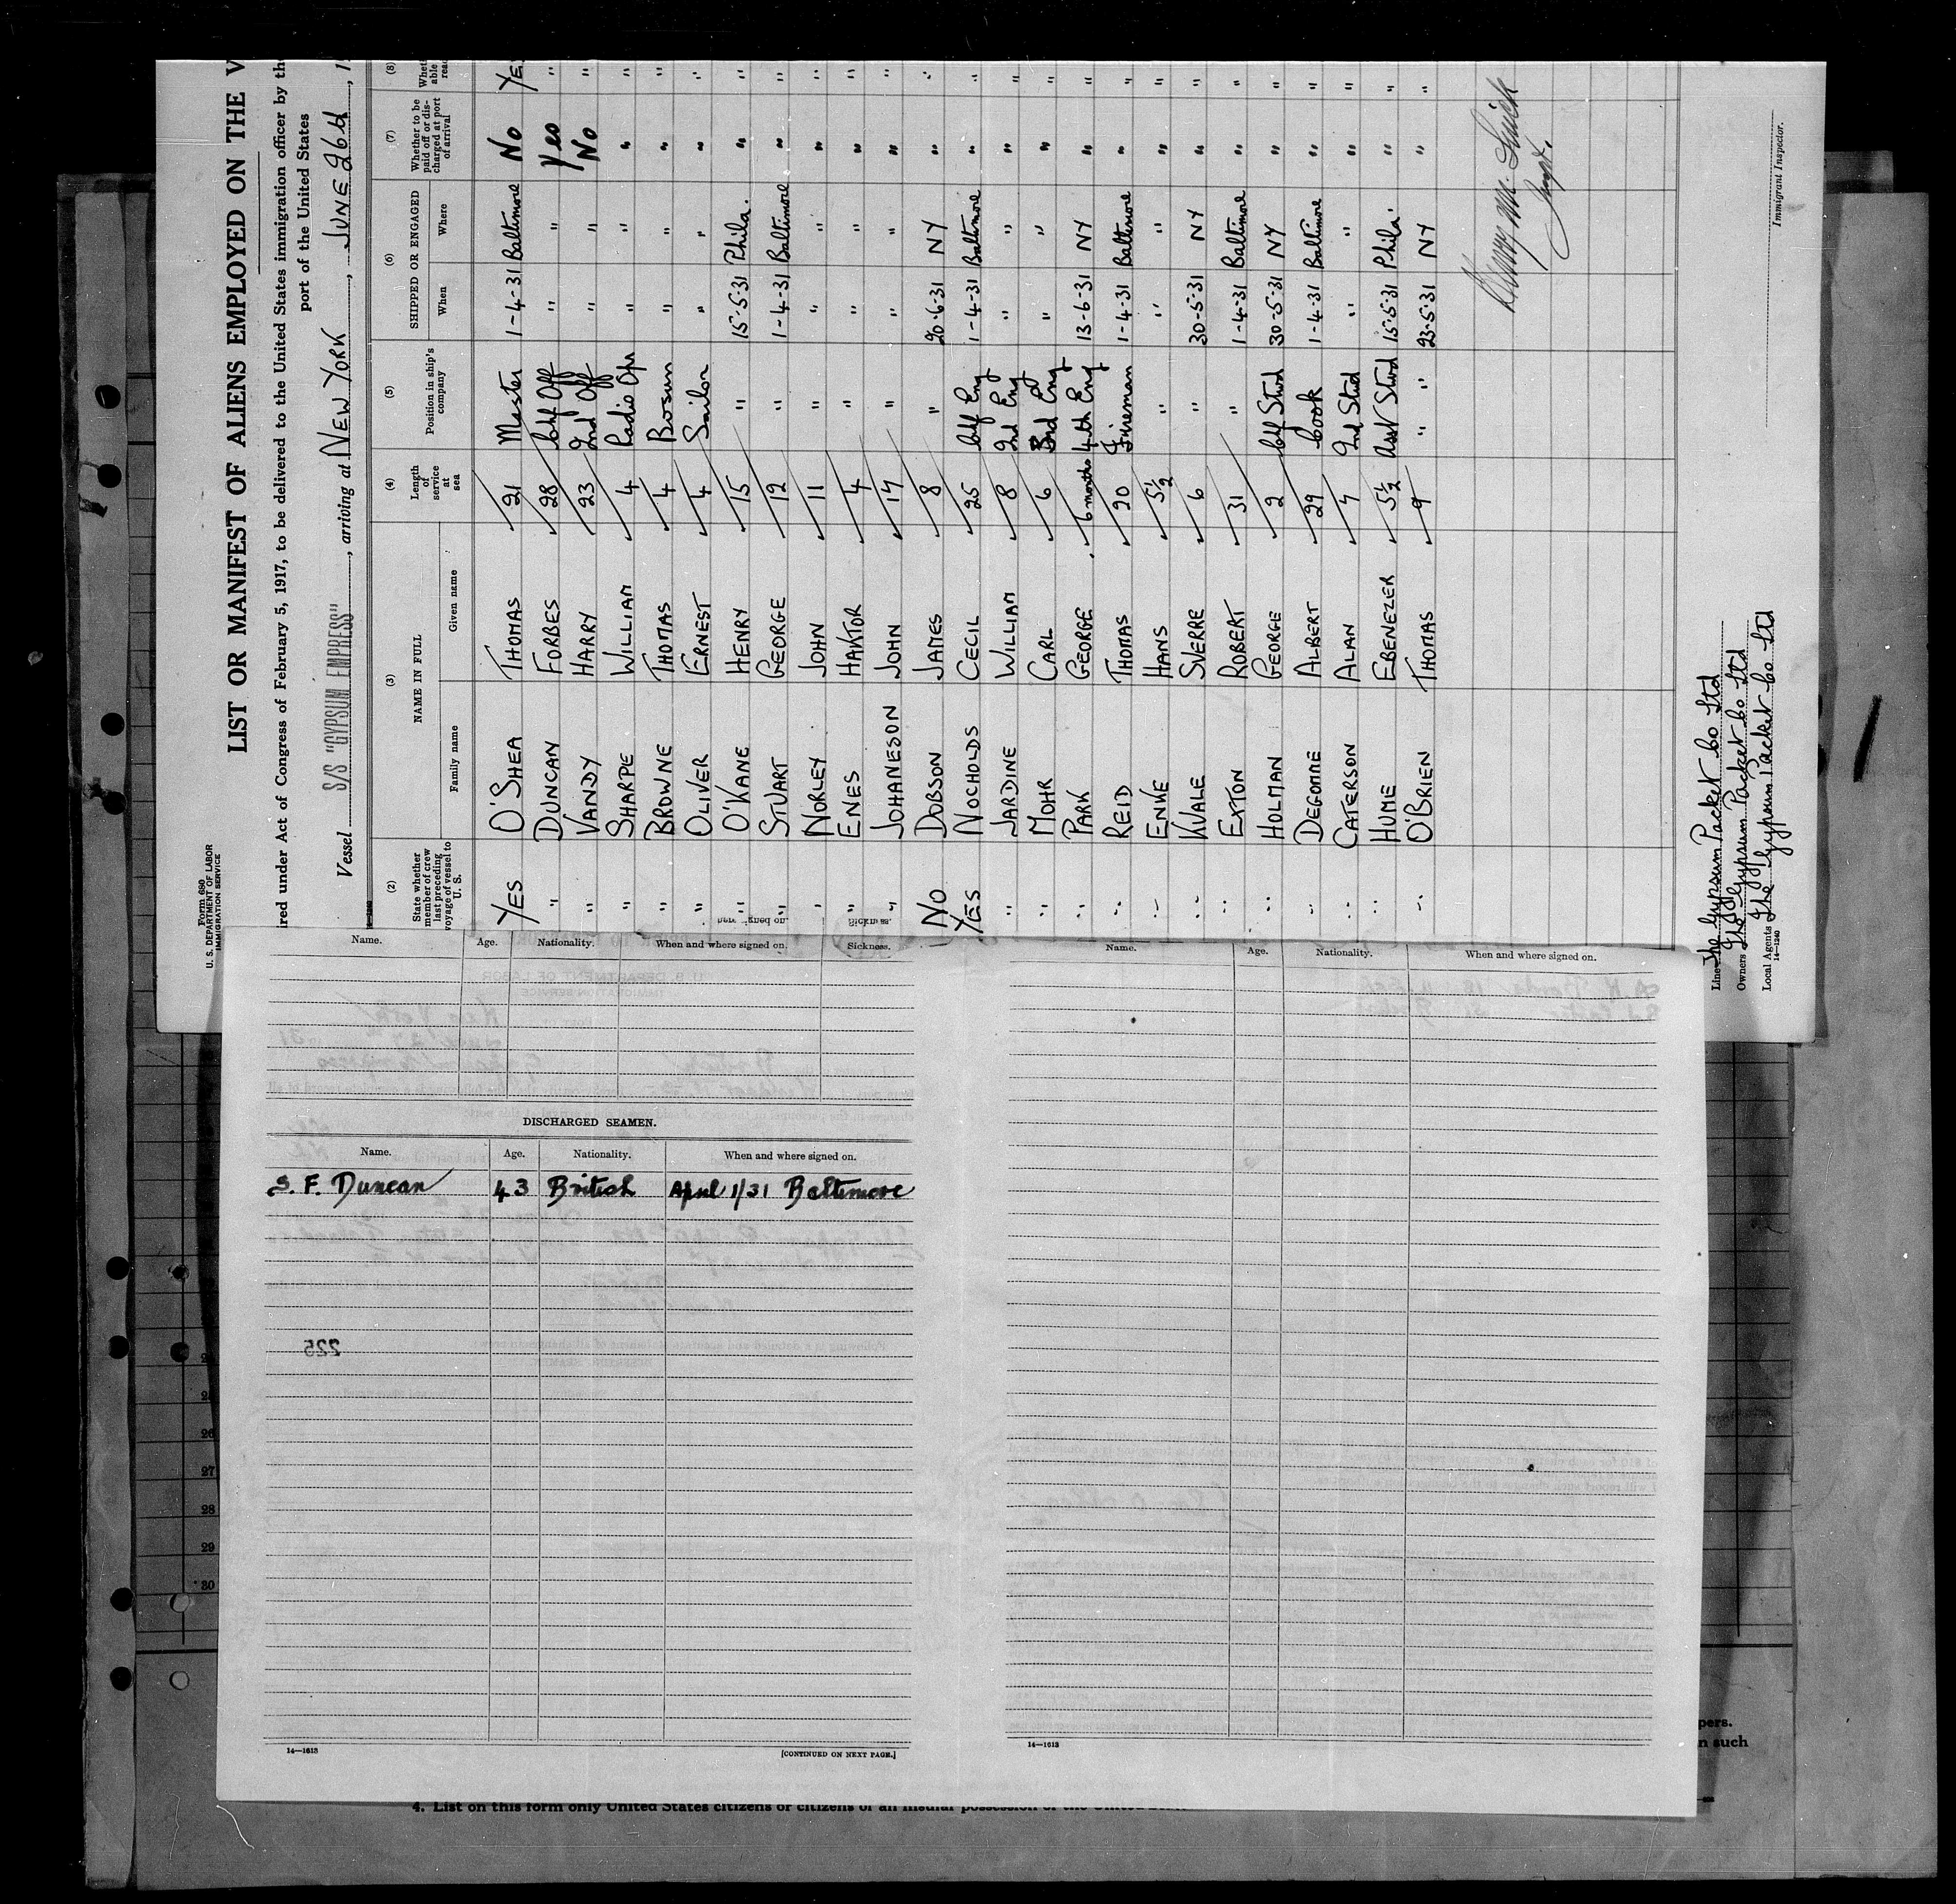 Form 680
U. S. DEPARTMENT OF LABOR
IMMIGRATION SERVICE
LIST OR MANIFEST OF ALIENS EMPLOYED ON THE V
ired under Act of Congress of February 5, 1917, to be delivered to the United States immigration officer by the
port of the United States
Vessel S/S "GYPSUM EMPRESS", arriving at NEW YORK, JUNE 26th, 1
(2) (3) (4) (5) (6) (7) (8)
State whether member of crew last preceding voyage of vessel to U. S. NAME IN FULL Length of service at sea Position in ship's company SHIPPED OR ENGAGED Whether to be paid off or discharged at port of arrival Wheth able reac
Family name Given name When Where
YES O'SHEA THOMAS 21 Master 1-4-31 Baltimore No YES
" DUNCAN FORBES 28 Chf Off " " Yes "
" VANDY HARRY 23 2nd Off " " No "
" SHARPE WILLIAM 4 Radio Opr " " " "
" BROWNE THOMAS 4 Bosun " " " "
" OLIVER ERNEST 4 Sailor " " " "
" O'KANE HENRY 15 " 15-5-31 Phila. " "
" STUART GEORGE 12 " 1-4-31 Baltimore " "
" NORLEY JOHN 11 " " " " "
" ENES 4 " " " " "
" JOHANESON JOHN 17 " " " " "
NO DOBSON JAMES 8 " 20-6-31 NY " "
YES NOCHOLDS CECIL 25 Chf Eng 1-4-31 Baltimore " "
" JARDINE WILLIAM 8 2nd Eng " " " "
" MOHR CARL 6 3rd Eng " " " "
" PARK GEORGE 6 months 4th Eng 13-6-31 NY " "
" REID THOMAS 20 Fireman 1-4-31 Baltimore " "
" ENKE HANS 5½ " " " " "
" KVALE SVERRE 6 " 30-5-31 NY " "
" EXTON ROBERT 31 " 1-4-31 Baltimore " "
" HOLMAN GEORGE 2 Chf Stwd 30-5-31 NY " "
" DEGOMME ALBERT 29 Cook 1-4-31 Baltimore " "
" CATERSON ALAN 7 2nd Stwd " " " "
" HUME EBENEZER 5½ Asst Stwd 15-5-31 Phila. " "
" O'BRIEN THOMAS 9 " " 23-5-31 NY " "
Immigrant Inspector.
Line The Gypsum Packet Co Ltd
Owners The Gypsum Packet Co Ltd
Local Agents The Gypsum Packet Co Ltd
14-1240
Name. Age. Nationality. When and where signed on. Sickness.
DISCHARGED SEAMEN.
Name. Age. Nationality. When and where signed on.
S. F. Duncan 43 British April 1/31 Baltimore
225
14—1613
[CONTINUED ON NEXT PAGE.]
Name. Age. Nationality. When and where signed on.
14—1613
26
27
28
29
30
pers.
n such
4. List on this form only United States citizens or citizens of an insular possession of the United